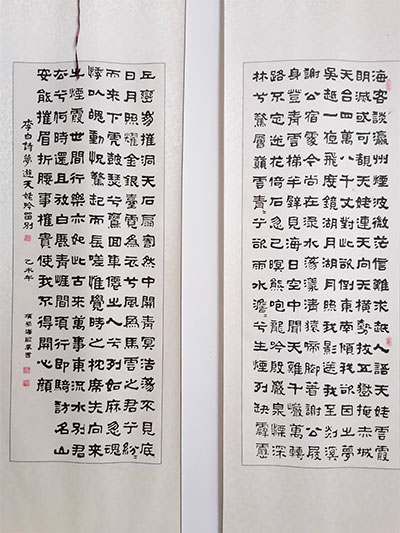 海客談瀛洲煙波微茫信難求越人語天姥雲霞
明滅或可覩天姥連天向天橫勢拔五嶽掩赤城
天台四萬八千丈對此欲倒東南傾我欲因之夢
吳越一夜飛度鏡湖月湖月照我影送我到剡溪
謝公宿處今尚在淥水蕩漾清猿啼腳著謝公屐
身登青雲梯半壁見海日空中聞天雞千巖萬轉
路不定迷花倚石忽已暝熊咆龍吟殷巖泉慄深
林兮驚層巔雲青〻兮欲雨水澹〻兮生煙列缺霹靂
丘巒崩摧洞天石扇訇然中開青冥浩蕩不見底
日月照耀金銀臺霓為衣兮風為馬雲之君兮紛〻
而來下虎鼓瑟兮鸞回車僊之人兮列如麻忽魂
悸以魄動怳驚起而長嗟惟覺時之枕席失向來
之煙霞世間行樂亦如此古來萬事東流水別君
去兮何時還且放白鹿青崖間須行即騎訪名山
安能摧眉折腰事權貴使我不得開心顏
李白詩夢遊天姥吟留別 乙未年 書